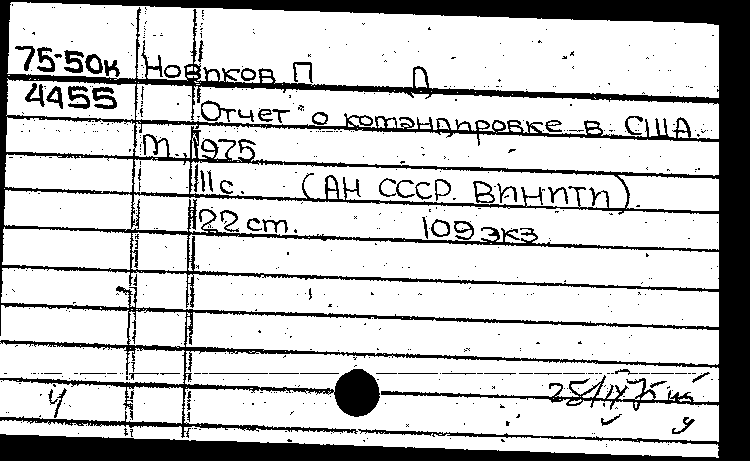 75-50к Новиков П Д
4455
Отчет о командировке в США.
М., 1975
11 с. (АН СССР. ВИНИТИ).
22 ст. 109 экз
25/IX 75
У